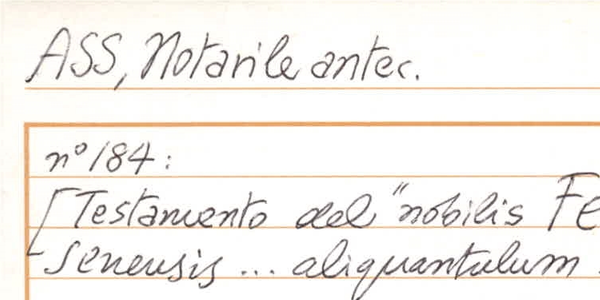 ASS, Notarile antec.
n° 184:
[Testamento del "nobilis Fe
Senensis ... aliquantulum